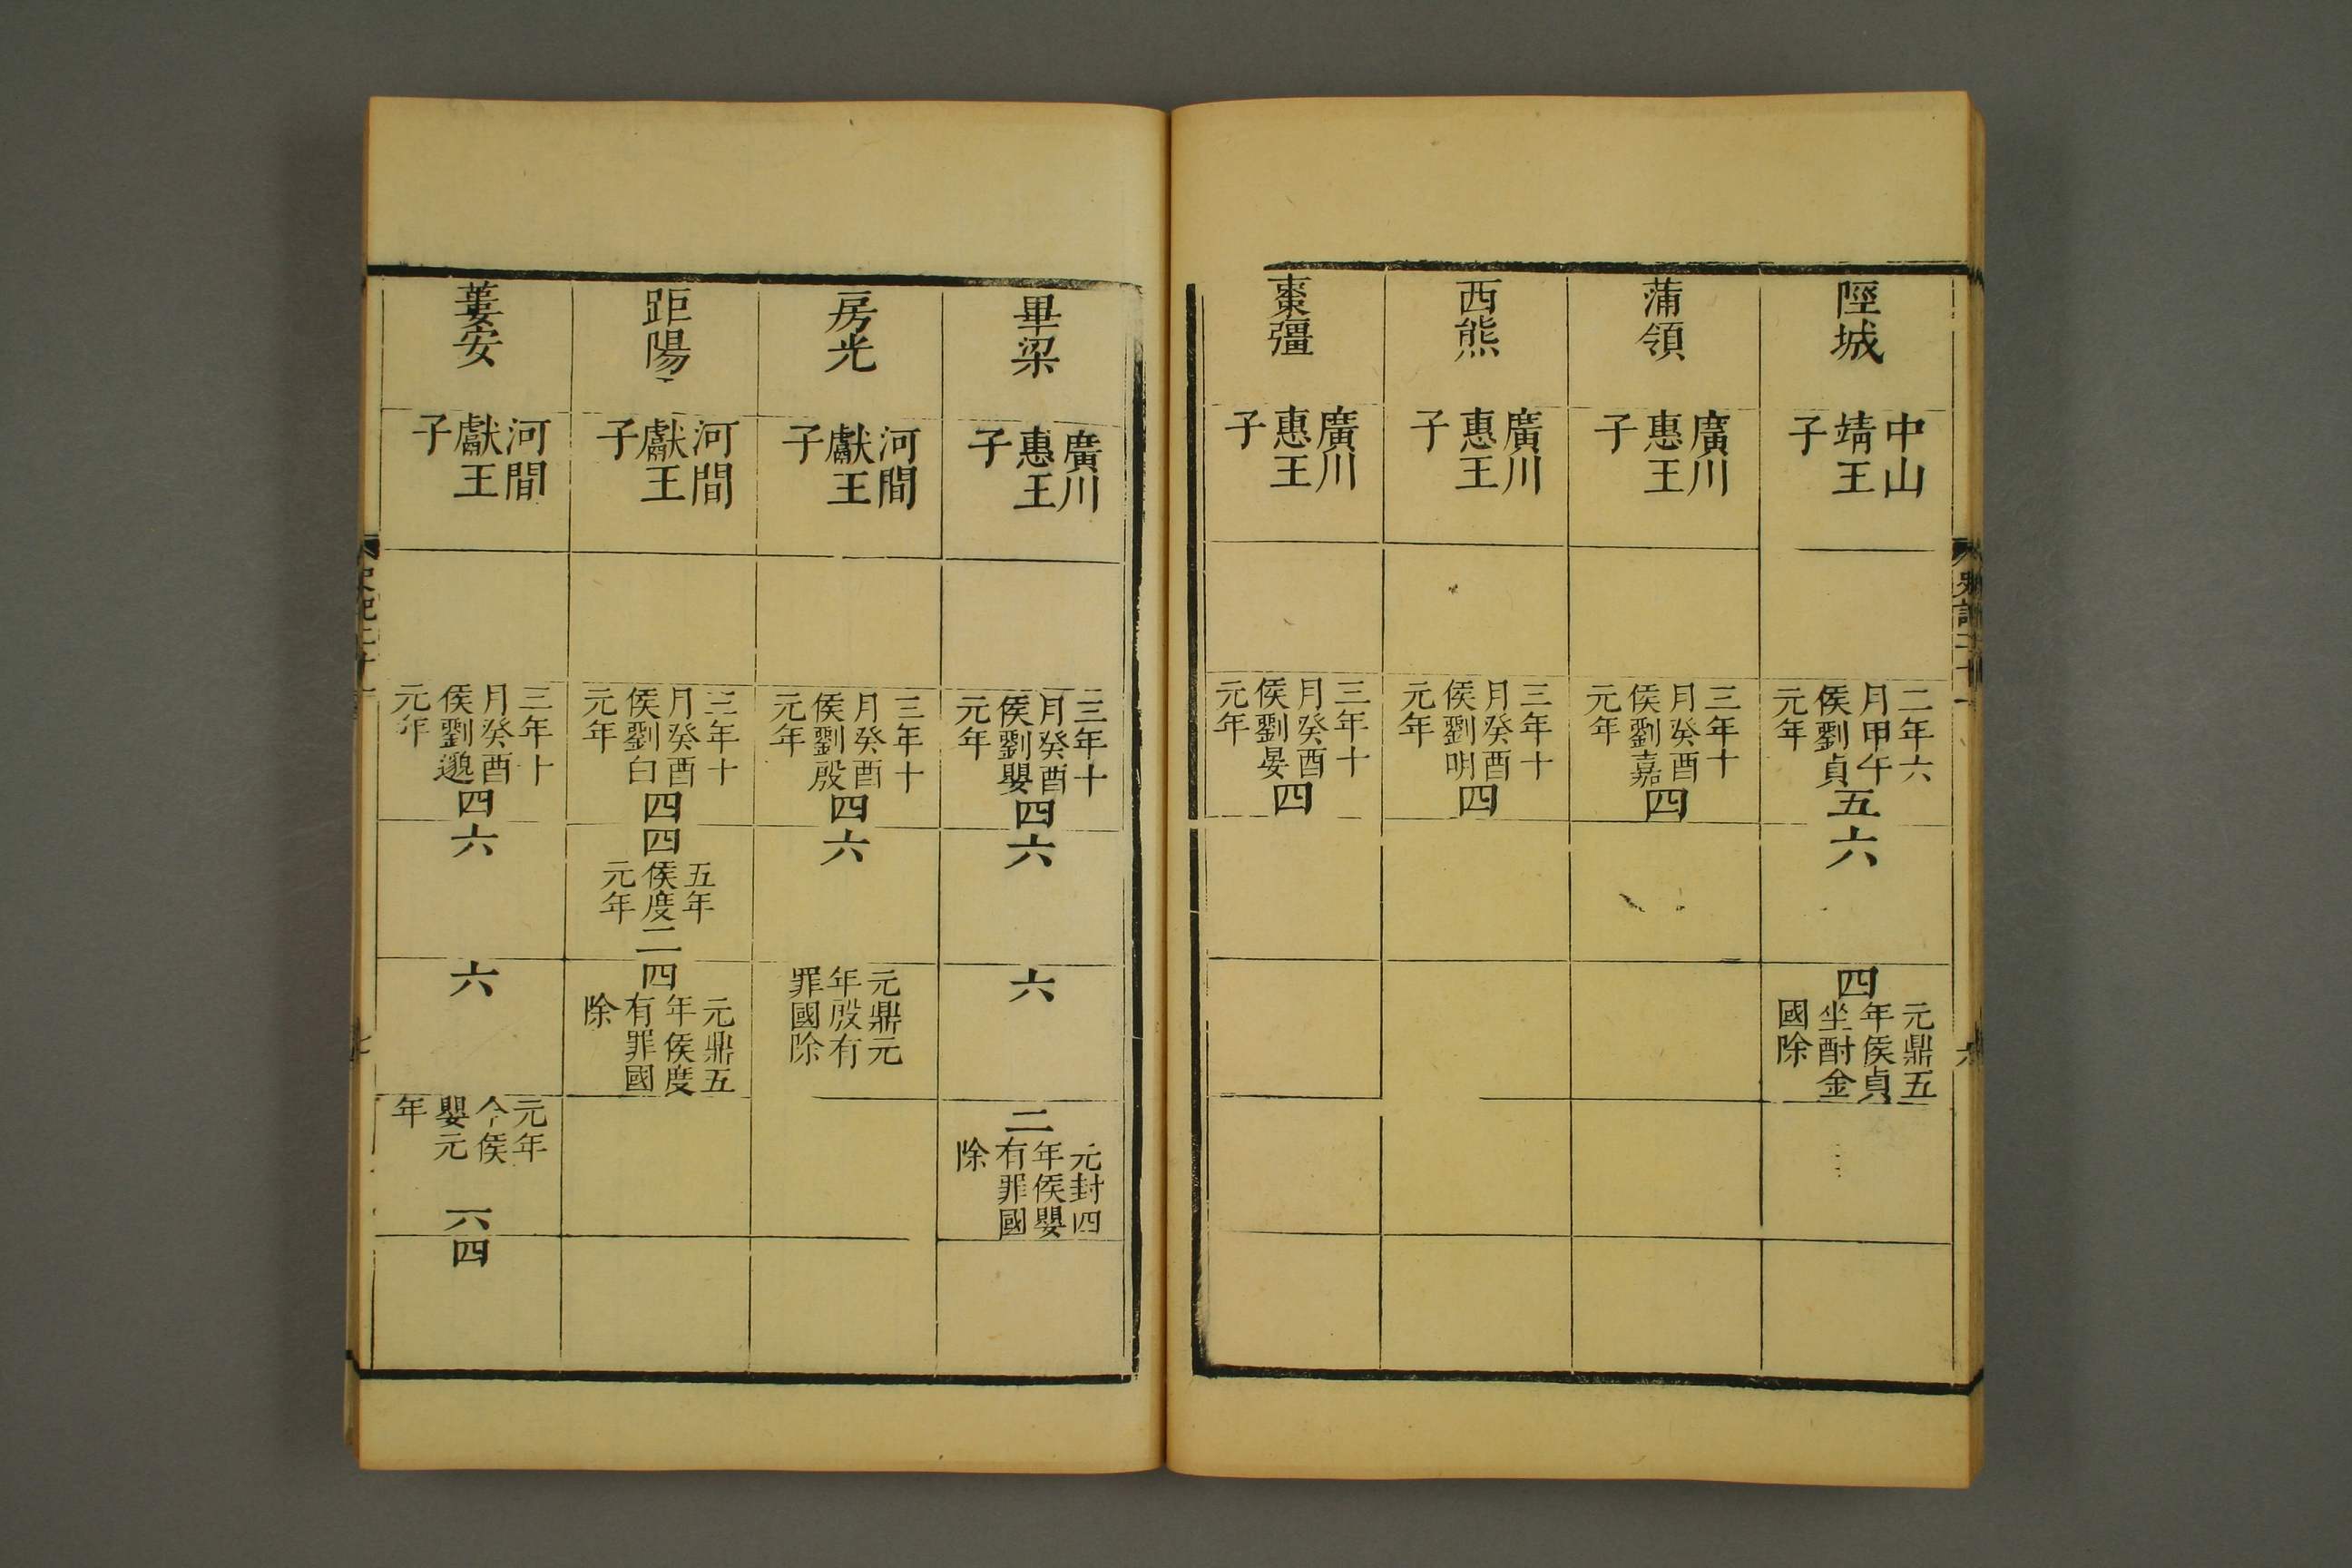 陘城
中山
靖王
子
二年六
月甲午
侯劉貞
元年
五
六
四
元鼎五
年侯貞
坐酎金
國除
蒲領
廣川
惠王
子
三年十
月癸酉
侯劉嘉
元年
四
西熊
廣川
惠王
子
三年十
月癸酉
侯劉明
元年
四
棗彊
廣川
惠王
子
三年十
月癸酉
侯劉晏
元年
四
畢梁
廣川
惠王
子
三年十
月癸酉
侯劉嬰
元年
四
六
六
二
元封四
年侯嬰
有罪國
除
房光
河間
獻王
子
三年十
月癸酉
侯劉殷
元年
四
六
元鼎元
年殷有
罪國除
距陽
河間
獻王
子
三年十
月癸酉
侯劉白
元年
四
四
五年
侯度
元年
二
四
元鼎五
年侯度
有罪國
除
蔞安
河間
獻王
子
三年十
月癸酉
侯劉邈
元年
四
六
六
元年
今侯
嬰元
年
六
四